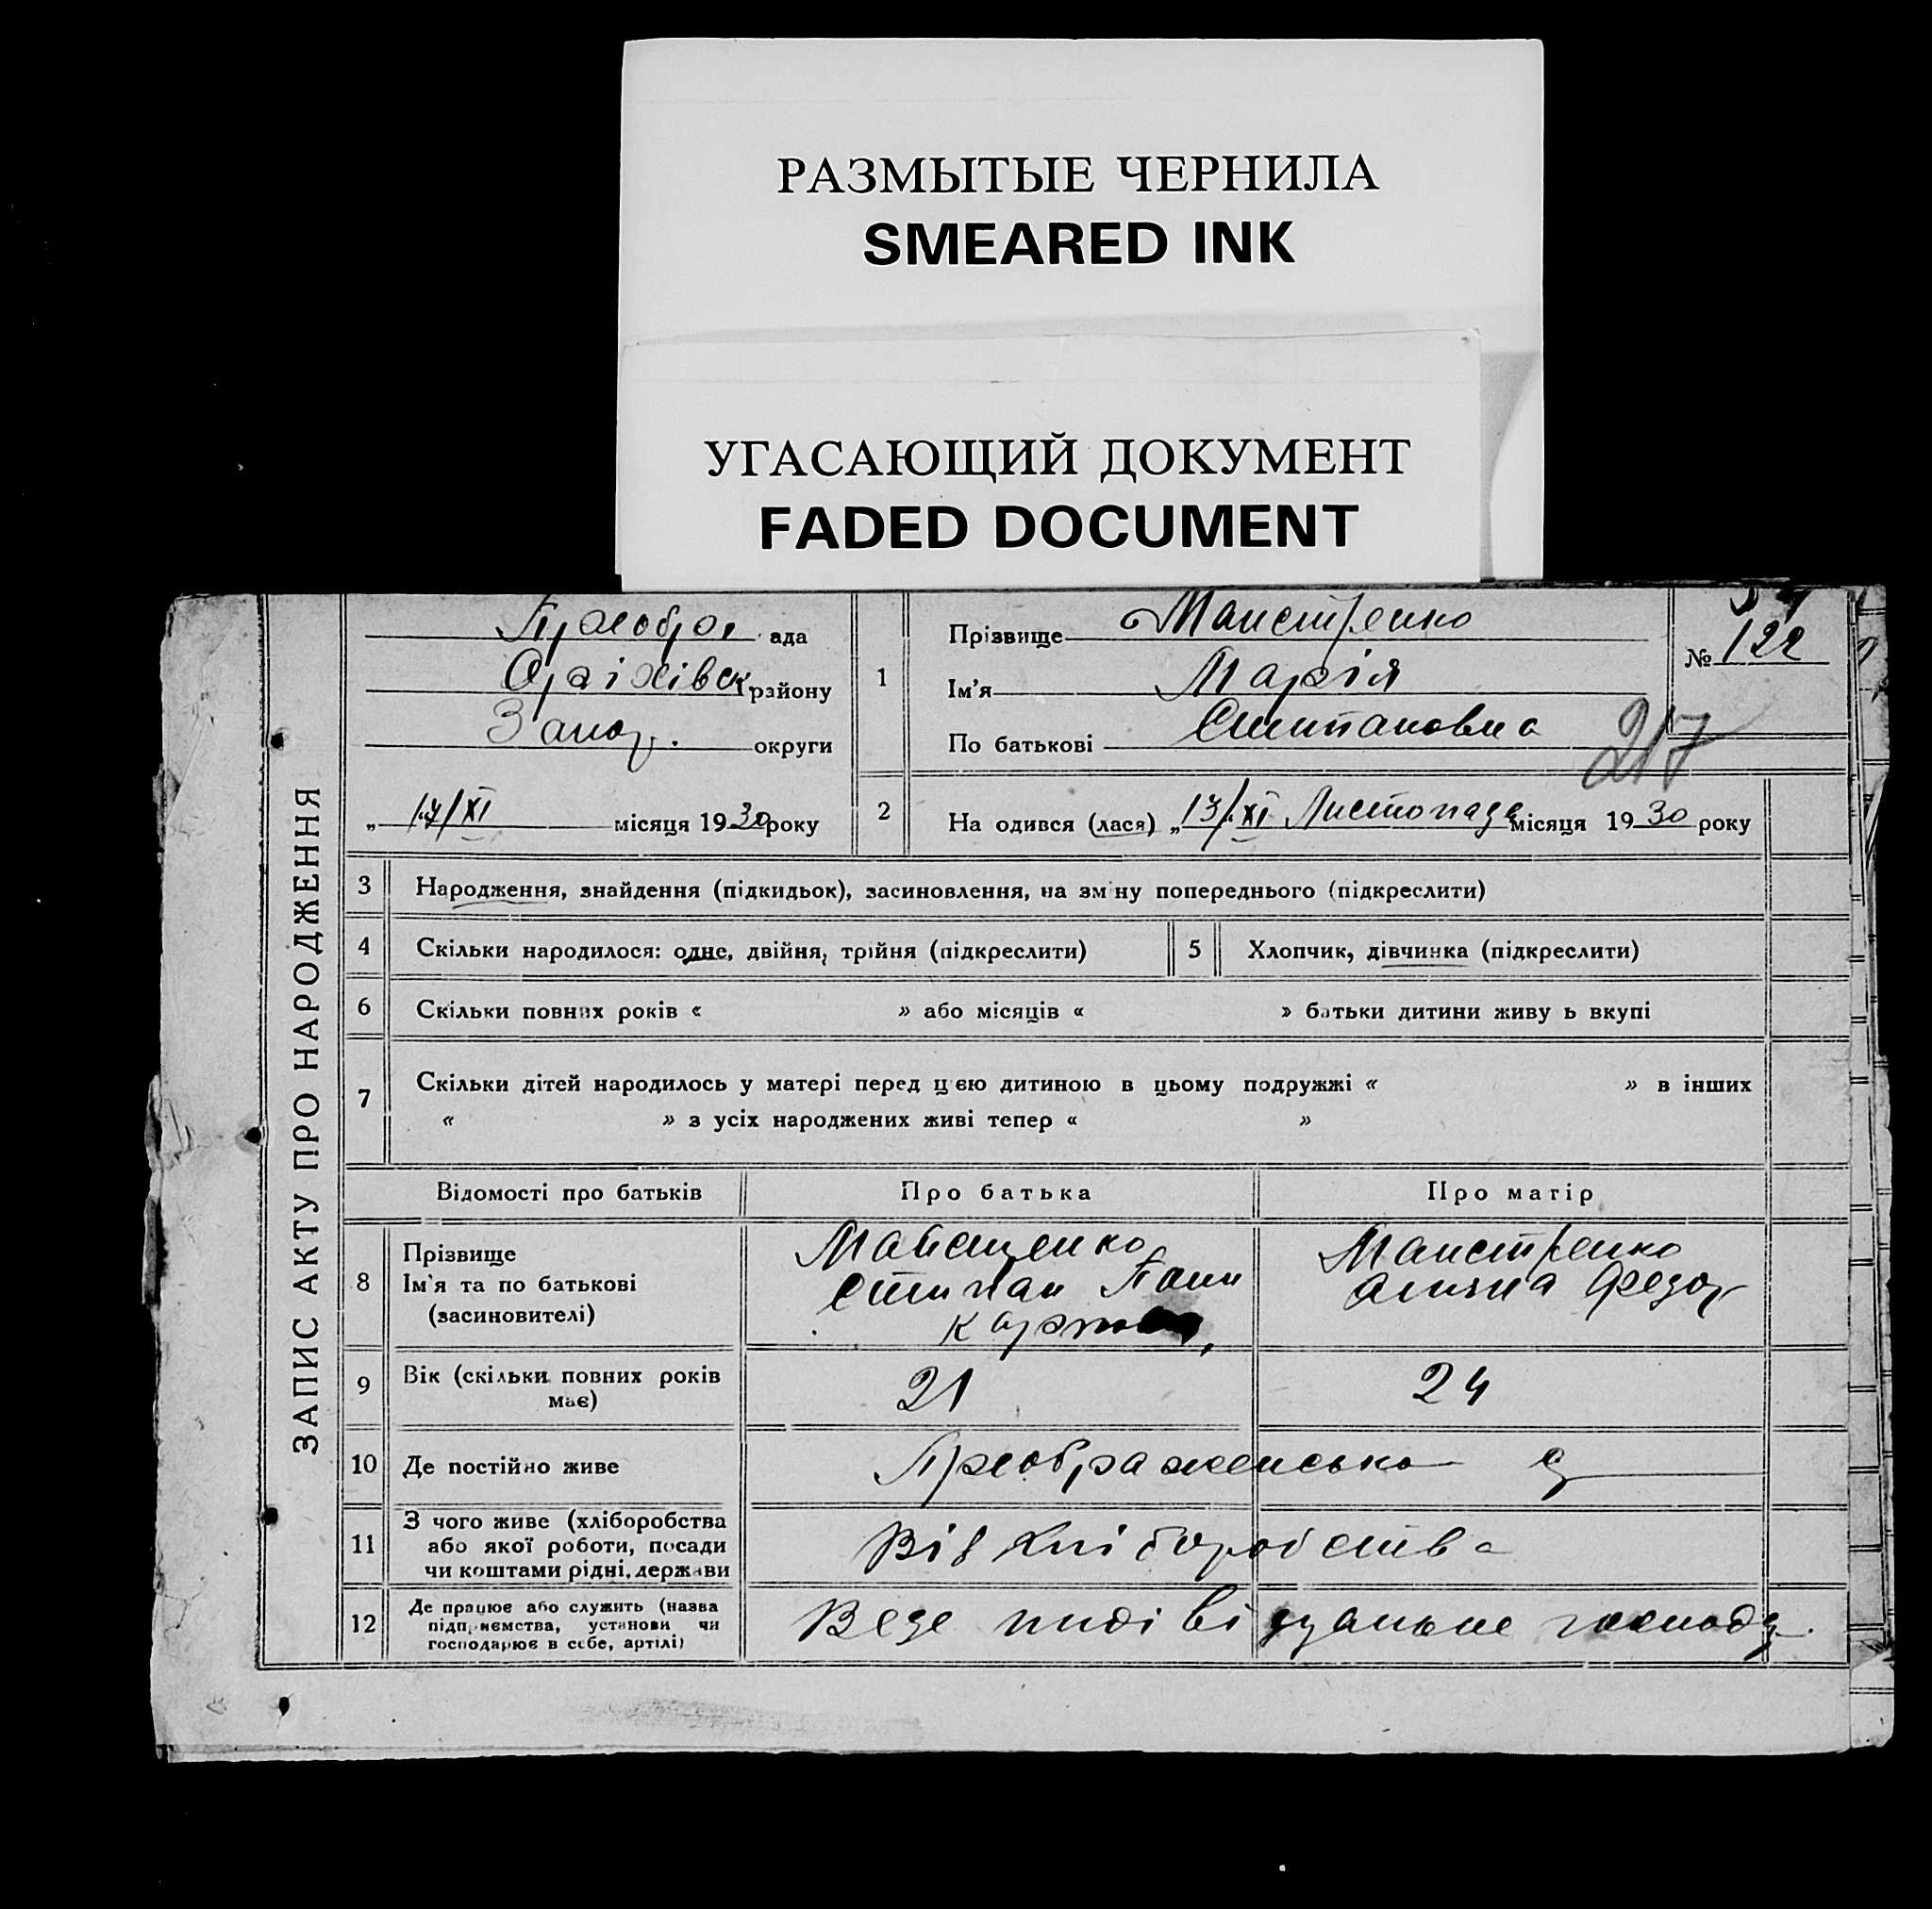 РАЗМЫТЫЕ ЧЕРНИЛА
SMEARED INK
УГАСАЮЩИЙ ДОКУМЕНТ
FADED DOCUMENT
ЗАПИС АКТУ ПРО НАРОДЖЕННЯ
Преображ ада
Оріхівськ району
Запор. округи
„ 17/XI місяця 1930 року
1
Прізвище Маистренко
Ім'я Марія
По батькові Степановна
№ 122
217
2 На одився (лася) „ 13/XI Листопада місяця 1930 року
3 Народження, знайдення (підкидьок), засиновлення, на зм ну попереднього (підкреслити)
4 Скільки народилося: одне, двійня, трійня (підкреслити) 5 Хлопчик, дівчинка (підкреслити)
6 Скільки повних років « » або місяців « » батьки дитини живу ь вкупі
7 Скільки дітей народилось у матері перед цією дитиною в цьому подружжі « » в інших
« » з усіх народжених живі тепер « »
Відомості про батьків Про батька Про матір
8 Прізвище Маистренко
Ім'я та по батькові Степан Федор
(засиновителі)
9 Вік (скільки повних років 21 24
має)
10 Де постійно живе Преображенська
11 З чого живе (хліборобства
або якої роботи, посади Від хліборобства
чи коштами рідні, держави
12 Де працює або служить (назва
підприємства, установи чи Веде индівідуальне господ.
господарює в себе, артілі)